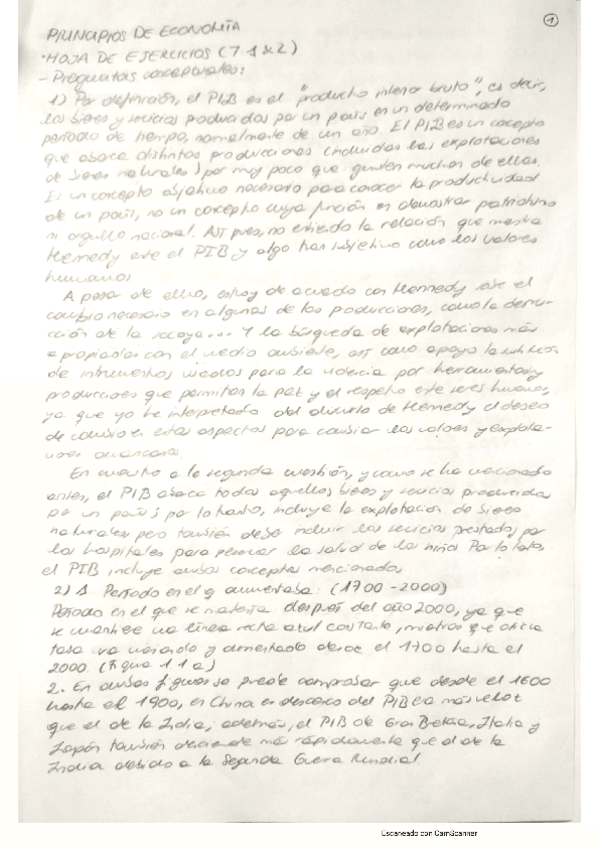 1
PRINCIPIOS DE ECONOMÍA
·HOJA DE EJERCICIOS (T 1 & 2)
- Preguntas conceptuales:
1) Por definición, el PIB es el "producto interior bruto", es decir,
los bienes y servicios producidos por un país en un determinado
período de tiempo, normalmente de un año. El PIB es un concepto
que abarca distintas producciones (incluidas las explotaciones
de bienes naturales) por muy poco que gusten muchas de ellas.
Es un concepto objetivo necesario para conocer la productividad
de un país, no un concepto cuya función es demostrar patriotismo
ni orgullo nacional. Así pues, no entiendo la relación que muestra
Kennedy entre el PIB y algo tan subjetivo como los valores
humanos
A pesar de ello, estoy de acuerdo con Kennedy sobre el
cambio necesario en algunas de las producciones, como la destru-
cción de la secoya... Y la búsqueda de explotaciones más
apropiadas con el medio ambiente, así como apoyo la
de instrumentos usados para la violencia por herramientas y
producciones que permitan la paz y el respeto entre seres humanos,
ya que yo he interpretado del discurso de Kennedy el deseo
de cambio en estos aspectos para cambiar los valores y
En cuanto a la segunda cuestión, y como se ha mencionado
antes, el PIB abarca todos aquellos bienes y servicios producidos
por un país y por lo tanto, incluye la explotación de bienes
naturales pero también debe incluir los servicios prestados por
los hospitales para la salud de los niños Por lo tanto,
el PIB incluye ambos conceptos mencionados
2) 1 Período en el q aumentaba: (1700-2000)
Período en el que se mantenía después del año 2000, ya que
se mantiene una línea recta azul constante, mientras que
tasa va variando y aumentando desde el 1700 hasta el
2000 (Figura 1 1 a)
2. En ambas figuras se puede comprobar que desde el 1600
hasta el 1900, en China el descenso del PIB era más veloz
que el de la India; además, el PIB de Gran Bretaña, Italia y
Japón también desciende más rápidamente que el de la
India debido a la Segunda Guerra Mundial
Escaneado con CamScanner